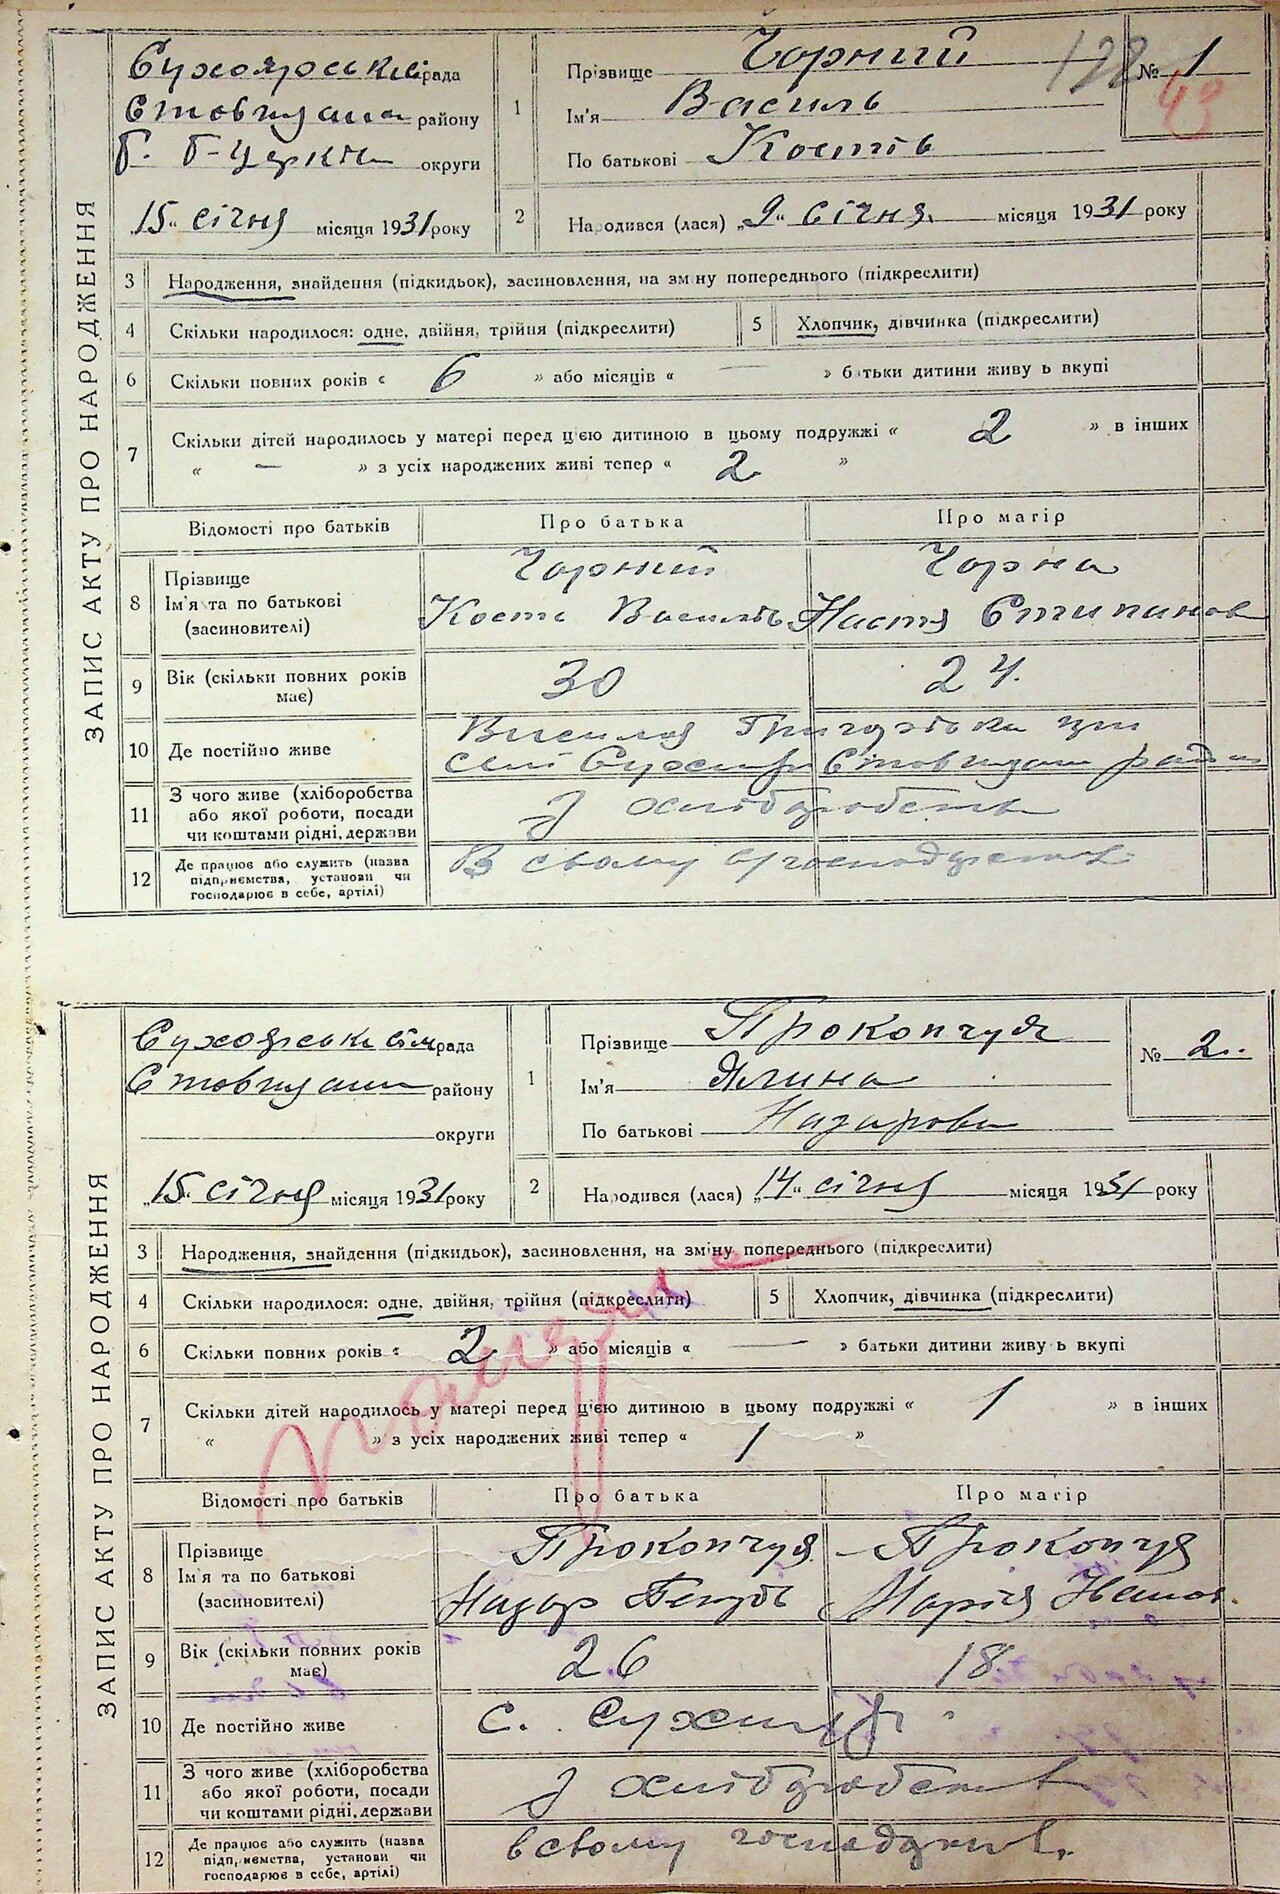 ЗАПИС АКТУ ПРО НАРОДЖЕННЯ
рада
району
округи
„15“ січня місяця 1931 року
1
Прізвище Чорний
Ім'я Василь
По батькові Костів
№ 1
2
Народився (лася) „9“ січня місяця 1931 року
3 Народження, знайдення (підкидьок), засиновлення, на зміну попереднього (підкреслити)
4 Скільки народилося: одне, двійня, трійня (підкреслити)
5 Хлопчик, дівчинка (підкреслити)
6 Скільки повних років « 6 » або місяців « — » батьки дитини живуть вкупі
7 Скільки дітей народилось у матері перед цією дитиною в цьому подружжі « 2 » в інших
« — » з усіх народжених живі тепер « 2 »
Відомості про батьків Про батька Про матір
8 Прізвище
Ім'я та по батькові
(засиновителі)
Чорний
Кость
Чорна
Настя
9 Вік (скільки повних років має) 30 24.
10 Де постійно живе
11 З чого живе (хліборобства
або якої роботи, посади
чи коштами рідні, держави
З
12 Де працює або служить (назва
підприємства, установи чи
господарює в себе, артілі)
В свому
ЗАПИС АКТУ ПРО НАРОДЖЕННЯ
рада
району
округи
„15“ січня місяця 1931 року
1
Прізвище Прокопчук
Ім'я
По батькові Назарова
№ 2
2
Народився (лася) „14“ січня місяця 1931 року
3 Народження, знайдення (підкидьок), засиновлення, на зміну попереднього (підкреслити)
4 Скільки народилося: одне, двійня, трійня (підкреслити)
5 Хлопчик, дівчинка (підкреслити)
6 Скільки повних років « 2 » або місяців « — » батьки дитини живуть вкупі
7 Скільки дітей народилось у матері перед цією дитиною в цьому подружжі « 1 » в інших
« » з усіх народжених живі тепер « 1 »
Відомості про батьків Про батька Про матір
8 Прізвище
Ім'я та по батькові
(засиновителі)
Прокопчук
Назар
Марія
9 Вік (скільки повних років має) 26 18.
10 Де постійно живе с.
11 З чого живе (хліборобства
або якої роботи, посади
чи коштами рідні, держави
З
12 Де працює або служить (назва
підприємства, установи чи
господарює в себе, артілі)
в свому